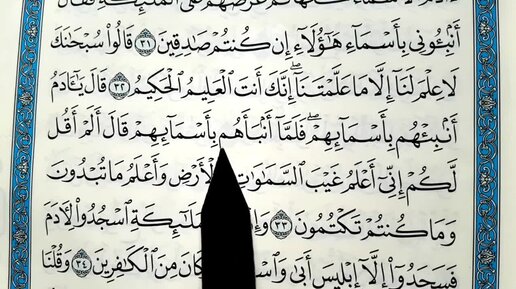 ءَادَمَ ٱلْأَسْمَآءَ كُلَّهَا ثُمَّ عَرَضَهُمْ عَلَى ٱلْمَلَٰٓئِكَةِ فَقَالَ
أَنۢبِـُٔونِى بِأَسْمَآءِ هَٰٓؤُلَآءِ إِن كُنتُمْ صَٰدِقِينَ ٣١ قَالُوا۟ سُبْحَٰنَكَ
لَا عِلْمَ لَنَآ إِلَّا مَا عَلَّمْتَنَآ إِنَّكَ أَنتَ ٱلْعَلِيمُ ٱلْحَكِيمُ ٣٢ قَالَ يَٰٓـَٔادَمُ
أَنۢبِئْهُم بِأَسْمَآئِهِمْ فَلَمَّآ أَنۢبَأَهُم بِأَسْمَآئِهِمْ قَالَ أَلَمْ أَقُل
لَّكُمْ إِنِّىٓ أَعْلَمُ غَيْبَ ٱلسَّمَٰوَٰتِ ٱلْأَرْضِ وَأَعْلَمُ مَا تُبْدُونَ
وَمَا كُنتُمْ تَكْتُمُونَ ٣٣ وَإِذْ لِلْمَلَٰٓئِكَةِ ٱسْجُدُوا۟ لِءَادَمَ
فَسَجَدُوٓا۟ إِلَّآ إِبْلِيسَ أَبَىٰ كَانَ مِنَ ٱلْكَٰفِرِينَ ٣٤ وَقُلْنَا